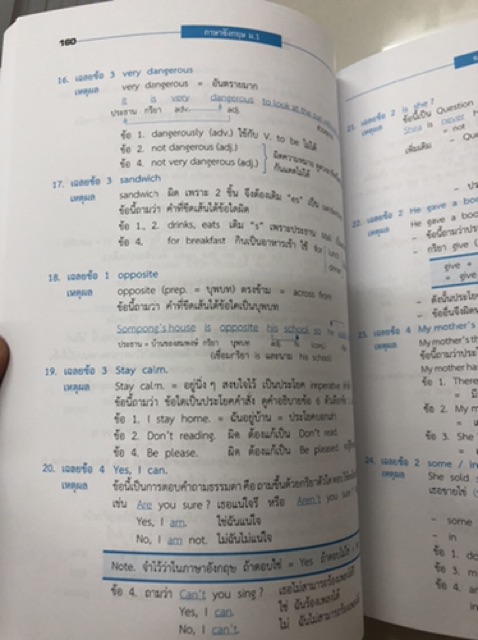 160
ภาษาอังกฤษ ม.1
16. เฉลยข้อ 3 very dangerous
เหตุผล very dangerous = อันตรายมาก
It is very dangerous to look at the sun
ประธาน กริยา adv. adj.
ข้อ 1. dangerously (adv.) ใช้กับ V. to be ไม่ได้
ข้อ 2. not dangerous (adj.)
ข้อ 4. not very dangerous (adj.)
17. เฉลยข้อ 3 sandwich
เหตุผล sandwich ผิด เพราะ 2 ชิ้น จึงต้องเติม "es" เป็น
ข้อนี้ถามว่า คำที่ขีดเส้นใต้ข้อใดผิด
ข้อ 1., 2. drinks, eats เติม "s" เพราะประธาน
ข้อ 4. for breakfast กินเป็นอาหารเช้า ใช้ for lunch
dinner
18. เฉลยข้อ 1 opposite
เหตุผล opposite (prep. = บุพบท) ตรงข้าม = across from
ข้อนี้ถามว่า คำที่ขีดเส้นใต้ข้อใดเป็นบุพบท
Sompong's house is opposite his school so he
ประธาน = บ้านของสมพงษ์ กริยา บุพบท
(เชื่อมกริยา is และนาม his school)
19. เฉลยข้อ 3 Stay calm.
เหตุผล Stay calm. = อยู่นิ่ง ๆ สงบใจไว้ เป็นประโยค imperative
ข้อนี้ถามว่า ข้อใดเป็นประโยคคำสั่ง ดูคำอธิบายข้อ 6
ข้อ 1. I stay home. = ฉันอยู่บ้าน = ประโยคบอกเล่า
ข้อ 2. Don't reading. ผิด ต้องแก้เป็น Don't read.
ข้อ 4. Be please. ผิด ต้องแก้เป็น Be pleased
20. เฉลยข้อ 4 Yes, I can.
เหตุผล ข้อนี้เป็นการตอบคำถามธรรมดา คือ ถามขึ้นต้นด้วยกริยาตัวใด
เช่น Are you sure ? เธอแน่ใจรึ หรือ Aren't you sure
Yes, I am. ใช่ฉันแน่ใจ
No, I am not. ไม่ฉันไม่แน่ใจ
Note. จำไว้ว่าในภาษาอังกฤษ ถ้าตอบใช่ = Yes ถ้าตอบไม่ใช่
ข้อ 4. ถามว่า Can't you sing ? เธอไม่สามารถร้องเพลงได้
Yes, I can. ใช่ ฉันร้องเพลงได้
No, I can't. ไม่ ฉันไม่สามารถร้องเพลง
21. เฉลยข้อ 2 is she ?
เหตุผล ข้อนี้เป็น Question
Shea is never
= not
เพิ่มเติม
22. เฉลยข้อ 2 He gave a
เหตุผล He gave a boo
– ข้อนี้ถามว่าประ
– กริยา give
give =
= give
– ดังนั้นประโย
– ข้ออื่นจึงผิด
23. เฉลยข้อ 4 My mother's
เหตุผล My mother's th
ข้อนี้ถามว่าประ
My mother ha
ข้อ 1. There
ข้อ 2. My m
ข้อ 3. She
24. เฉลยข้อ 2 some / in
เหตุผล She sold
เธอขายไข่
– some
– in
ข้อ 1. do
ข้อ 3. m
ข้อ 4. ar
in